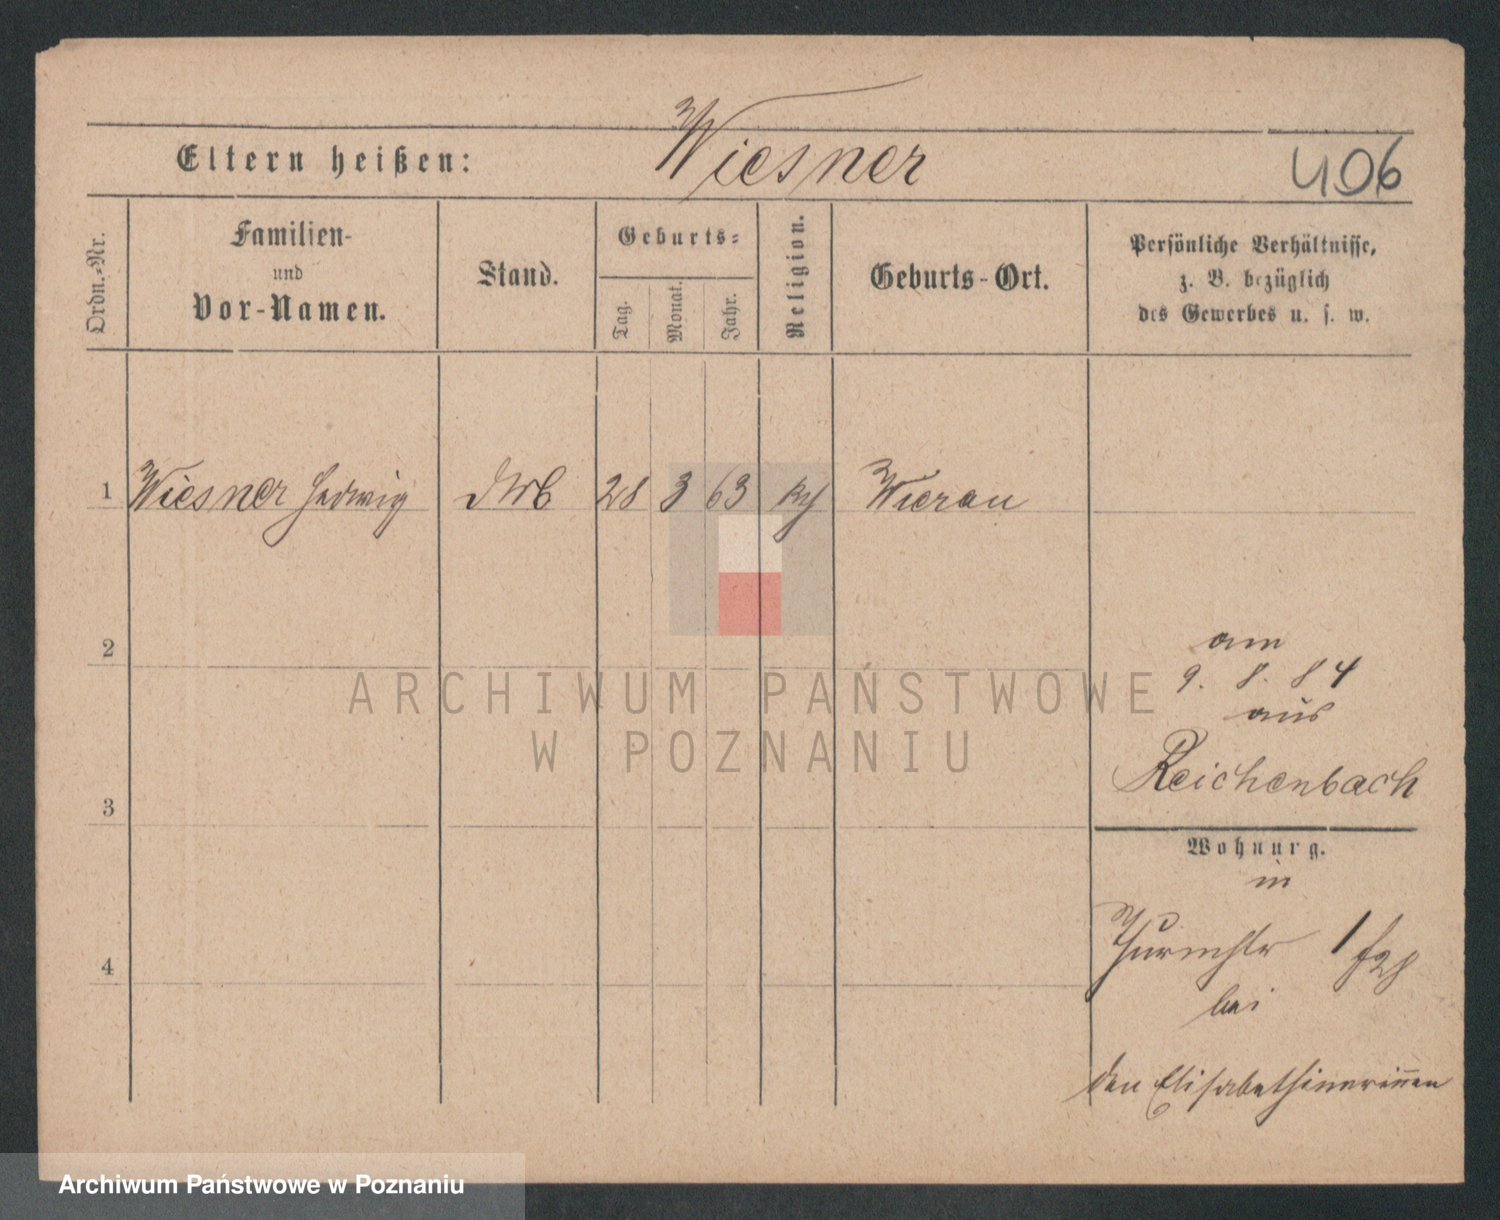 Eltern heißen: Wiesner 406
Ordn.-Nr.
Familien-
und
Vor-Namen.
Stand.
Geburts-
Tag.
Monat.
Jahr.
Religion.
Geburts-Ort.
Persönliche Verhältnisse,
z. B. bezüglich
des Gewerbes u. s. w.
1 Wiesner Hedwig 28 3 63 Wierau
2
3
4
am
9. 8. 84
aus
Reichenbach
Wohnung.
in
1
bei
den Elisabethinerinnen
ARCHIWUM PAŃSTWOWE
W POZNANIU
Archiwum Państwowe w Poznaniu